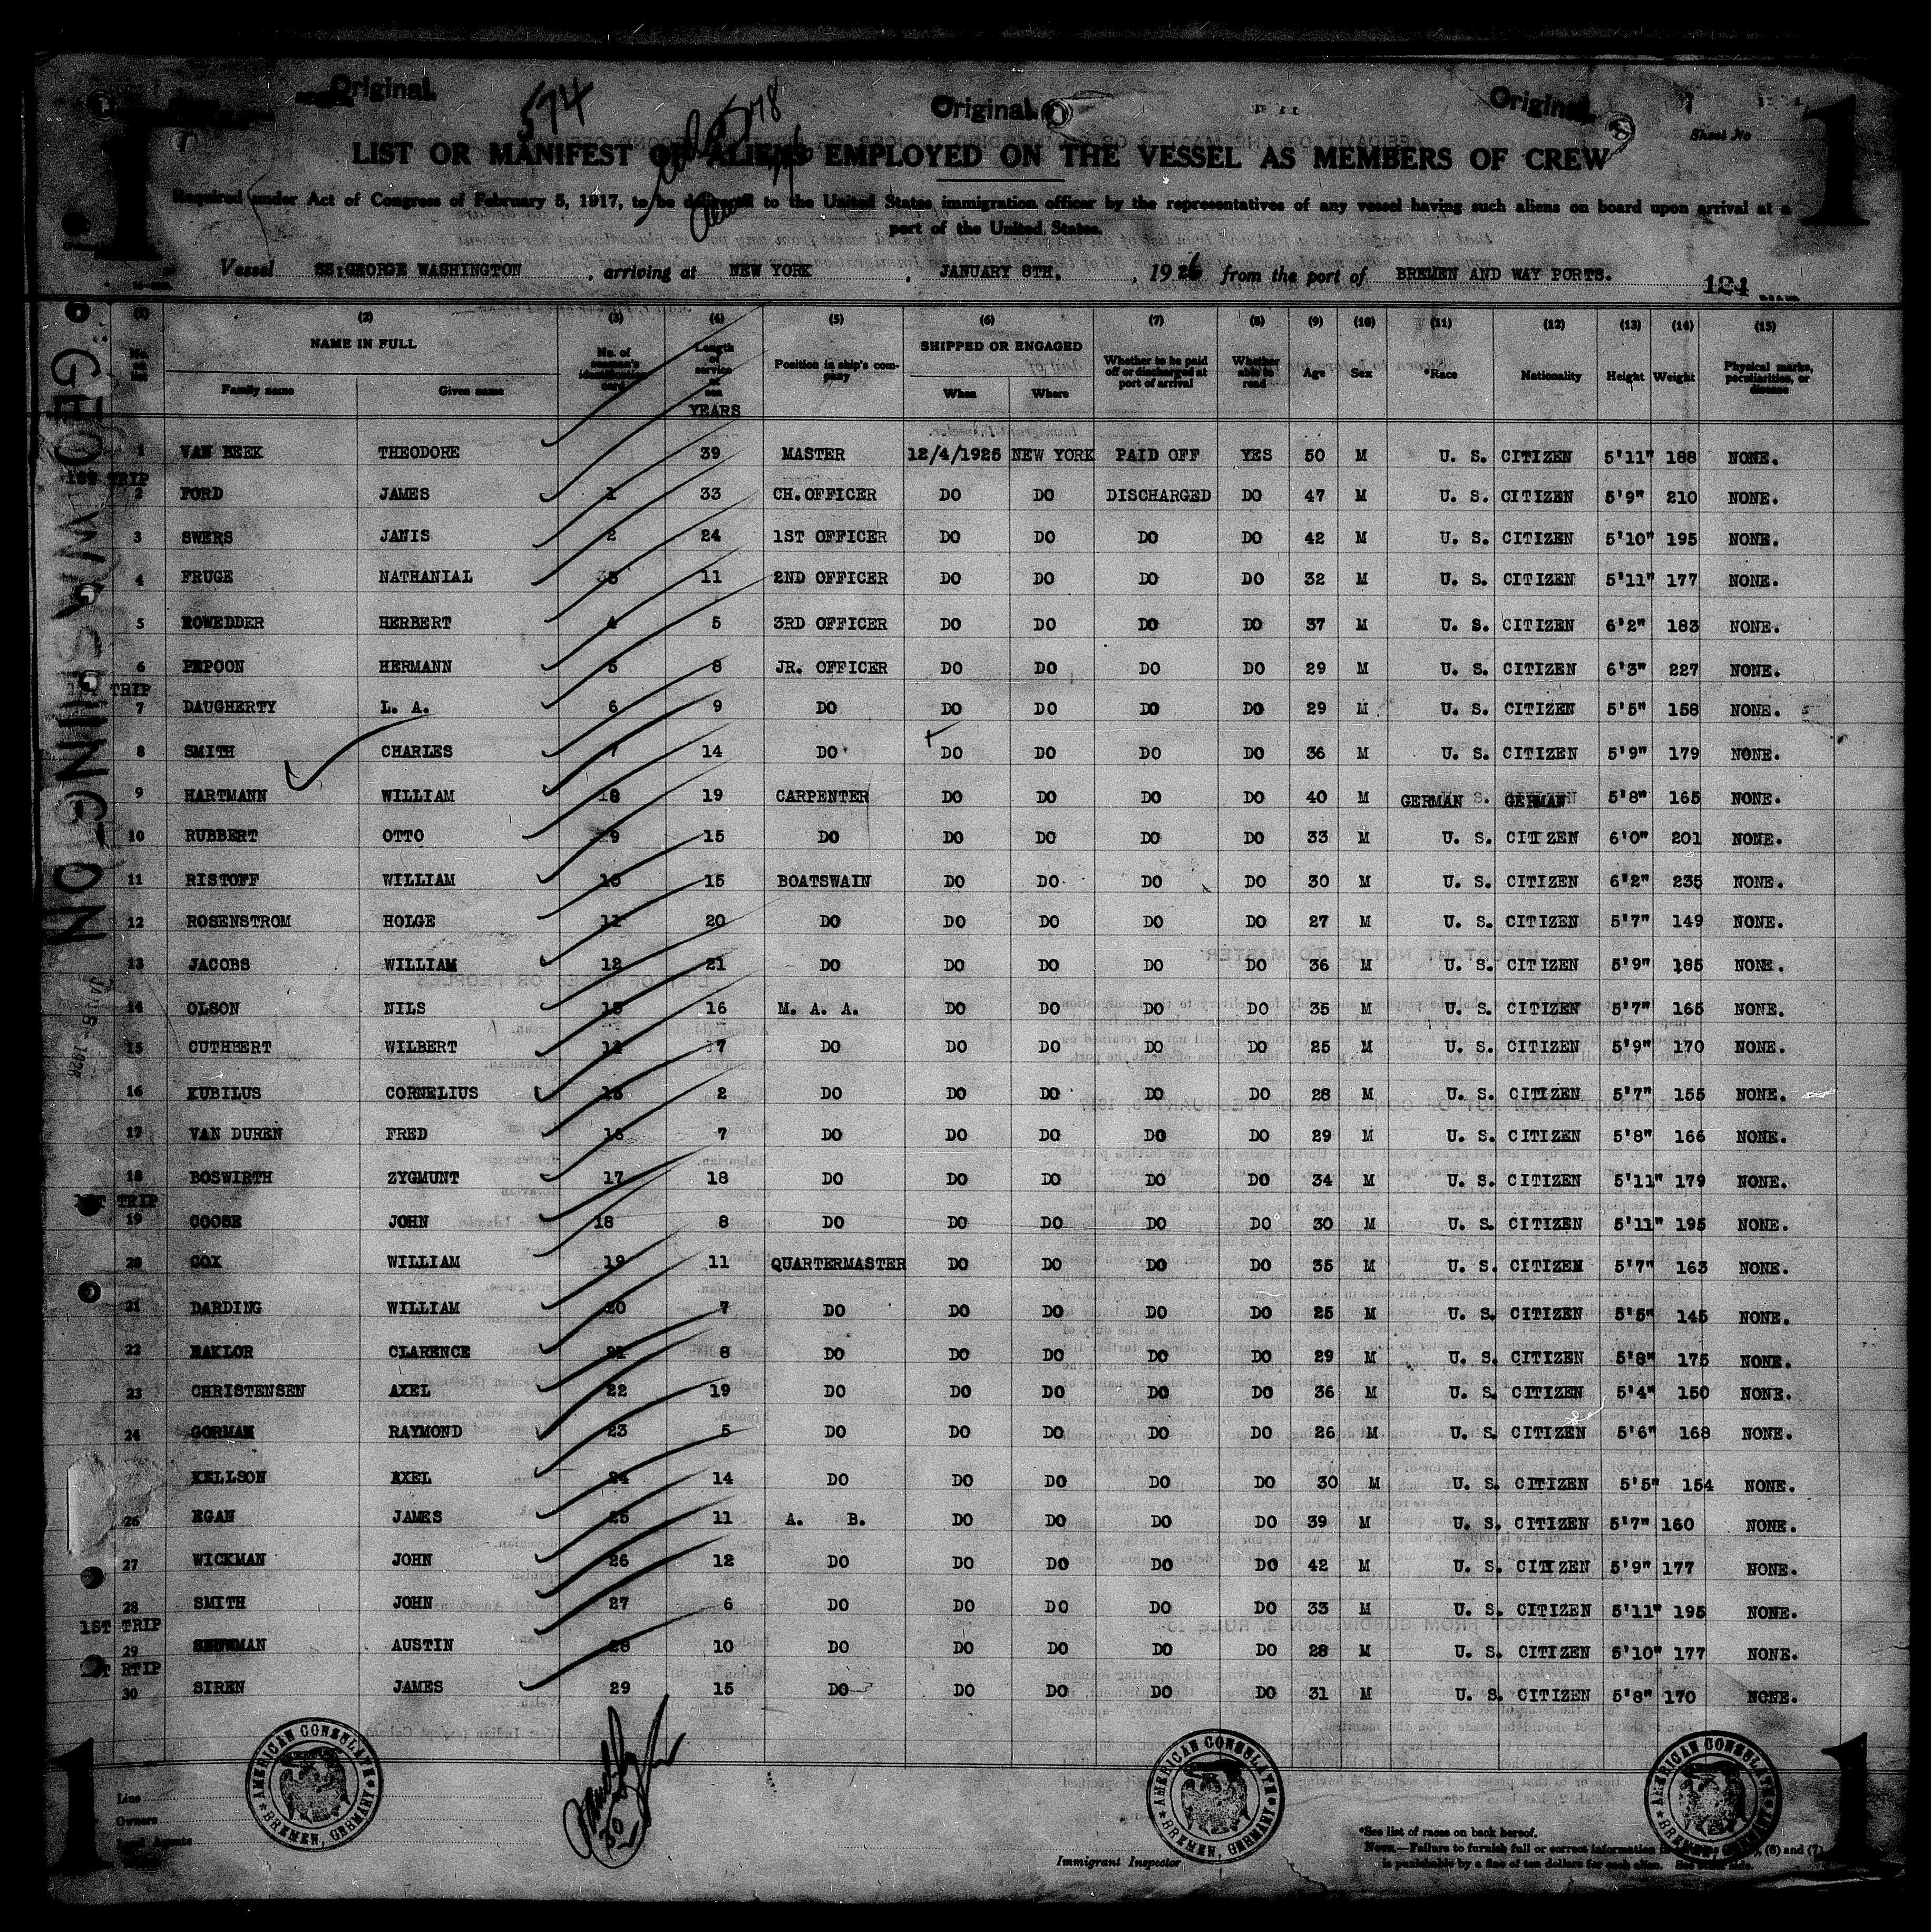 Original
Original
Original
574
Sheet No
LIST OR MANIFEST OF ALIENS EMPLOYED ON THE VESSEL AS MEMBERS OF CREW
Required under Act of Congress of February 5, 1917, to be delivered to the United States immigration officer by the representatives of any vessel having such aliens on board upon arrival at a
port of the United States.
Vessel SS:GEORGE WASHINGTON, arriving at NEW YORK, JANUARY 8TH., 1926 from the port of BREMEN AND WAY PORTS. 124
GEO. WASHINGTON
(2) (3) (4) (5) (6) (7) (8) (9) (10) (11) (12) (13) (14) (15)
NAME IN FULL Family name Given name No. of seaman's identification card Length of service at sea YEARS Position in ship's company SHIPPED OR ENGAGED When Where Whether to be paid off or discharged at port of arrival Whether able to read Age Sex *Race Nationality Height Weight Physical marks, peculiarities, or disease
1 VAN BEEK THEODORE 39 MASTER 12/4/1925 NEW YORK PAID OFF YES 50 M U. S. CITIZEN 5'11" 188 NONE.
1ST TRIP
2 FORD JAMES 1 33 CH.OFFICER DO DO DISCHARGED DO 47 M U. S. CITIZEN 5'9" 210 NONE.
3 SWERS JANIS 2 24 1ST OFFICER DO DO DO DO 42 M U. S. CITIZEN 5'10" 195 NONE.
4 FRUGE NATHANIAL 3 11 2ND OFFICER DO DO DO DO 32 M U. S. CITIZEN 5'11" 177 NONE.
5 ROWEDDER HERBERT 4 5 3RD OFFICER DO DO DO DO 37 M U. S. CITIZEN 6'2" 183 NONE.
6 PEPOON HERMANN 5 8 JR. OFFICER DO DO DO DO 29 M U. S. CITIZEN 6'3" 227 NONE.
TRIP
7 DAUGHERTY L. A. 6 9 DO DO DO DO DO 29 M U. S. CITIZEN 5'5" 158 NONE.
8 SMITH CHARLES 7 14 DO DO DO DO DO 36 M U. S. CITIZEN 5'9" 179 NONE.
9 HARTMANN WILLIAM 8 19 CARPENTER DO DO DO DO 40 M GERMAN GERMAN 5'8" 165 NONE.
10 RUBBERT OTTO 9 15 DO DO DO DO DO 33 M U. S. CITIZEN 6'0" 201 NONE.
11 RISTOFF WILLIAM 10 15 BOATSWAIN DO DO DO DO 30 M U. S. CITIZEN 6'2" 235 NONE.
12 ROSENSTROM HOLGE 11 20 DO DO DO DO DO 27 M U. S. CITIZEN 5'7" 149 NONE.
13 JACOBS WILLIAM 12 21 DO DO DO DO DO 36 M U. S. CITIZEN 5'9" 185 NONE.
14 OLSON NILS 13 16 M. A. A. DO DO DO DO 35 M U. S. CITIZEN 5'7" 165 NONE.
15 CUTHBERT WILBERT 14 7 DO DO DO DO DO 25 M U. S. CITIZEN 5'9" 170 NONE.
16 KUBILUS CORNELIUS 15 2 DO DO DO DO DO 28 M U. S. CITIZEN 5'7" 155 NONE.
17 VAN DUREN FRED 16 7 DO DO DO DO DO 29 M U. S. CITIZEN 5'8" 166 NONE.
18 BOSWIRTH ZYGMUNT 17 18 DO DO DO DO DO 34 M U. S. CITIZEN 5'11" 179 NONE.
1ST TRIP
19 COOSE JOHN 18 8 DO DO DO DO DO 30 M U. S. CITIZEN 5'11" 195 NONE.
20 COX WILLIAM 19 11 QUARTERMASTER DO DO DO DO 35 M U. S. CITIZEN 5'7" 163 NONE.
21 DARDING WILLIAM 20 7 DO DO DO DO DO 25 M U. S. CITIZEN 5'5" 145 NONE.
22 CLARENCE 21 8 DO DO DO DO DO 29 M U. S. CITIZEN 5'8" 175 NONE.
23 CHRISTENSEN AXEL 22 19 DO DO DO DO DO 36 M U. S. CITIZEN 5'4" 150 NONE.
24 GORMAN RAYMOND 23 5 DO DO DO DO DO 26 M U. S. CITIZEN 5'6" 168 NONE.
KELLSON AXEL 24 14 DO DO DO DO DO 30 M U. S. CITIZEN 5'5" 154 NONE.
26 EGAN JAMES 25 11 A. B. DO DO DO DO 39 M U. S. CITIZEN 5'7" 160 NONE.
27 WICKMAN JOHN 26 12 DO DO DO DO DO 42 M U. S. CITIZEN 5'9" 177 NONE.
28 SMITH JOHN 27 6 DO DO DO DO DO 33 M U. S. CITIZEN 5'11" 195 NONE.
1ST TRIP
29 AUSTIN 28 10 DO DO DO DO DO 28 M U. S. CITIZEN 5'10" 177 NONE.
RTIP
30 SIREN JAMES 29 15 DO DO DO DO DO 31 M U. S. CITIZEN 5'8" 170 NONE.
AMERICAN CONSULATE BREMEN, GERMANY
AMERICAN CONSULATE BREMEN, GERMANY
AMERICAN CONSULATE BREMEN, GERMANY
Line
Owners
Local Agents
30
Immigrant Inspector
*See list of races on back hereof.
NOTE.—Failure to furnish full or correct information in (6) and (7)
is punishable by a fine of ten dollars for each alien. See other side.
1
1
1
1